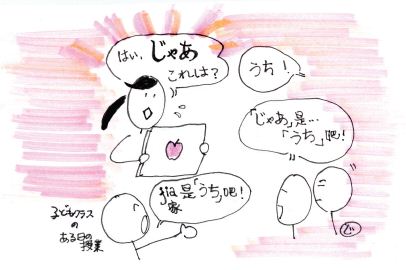 はい、じゃあ
これは?
うち!
「じゃあ」是…
「うち」吧!
jia是「うち」吧!
家
子どもクラス
の
ある日の
授業